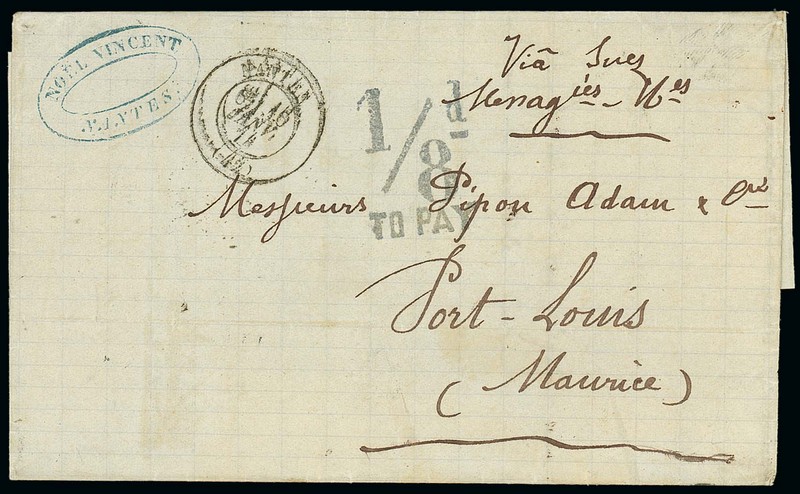 NOËL VINCENT
NANTES
NANTES
16
JANV.
Viâ Suez
Messag.ies N.les
1/8d
TO PAY
Messieurs Pipon Adam & Cie
Port-Louis
(Maurice)